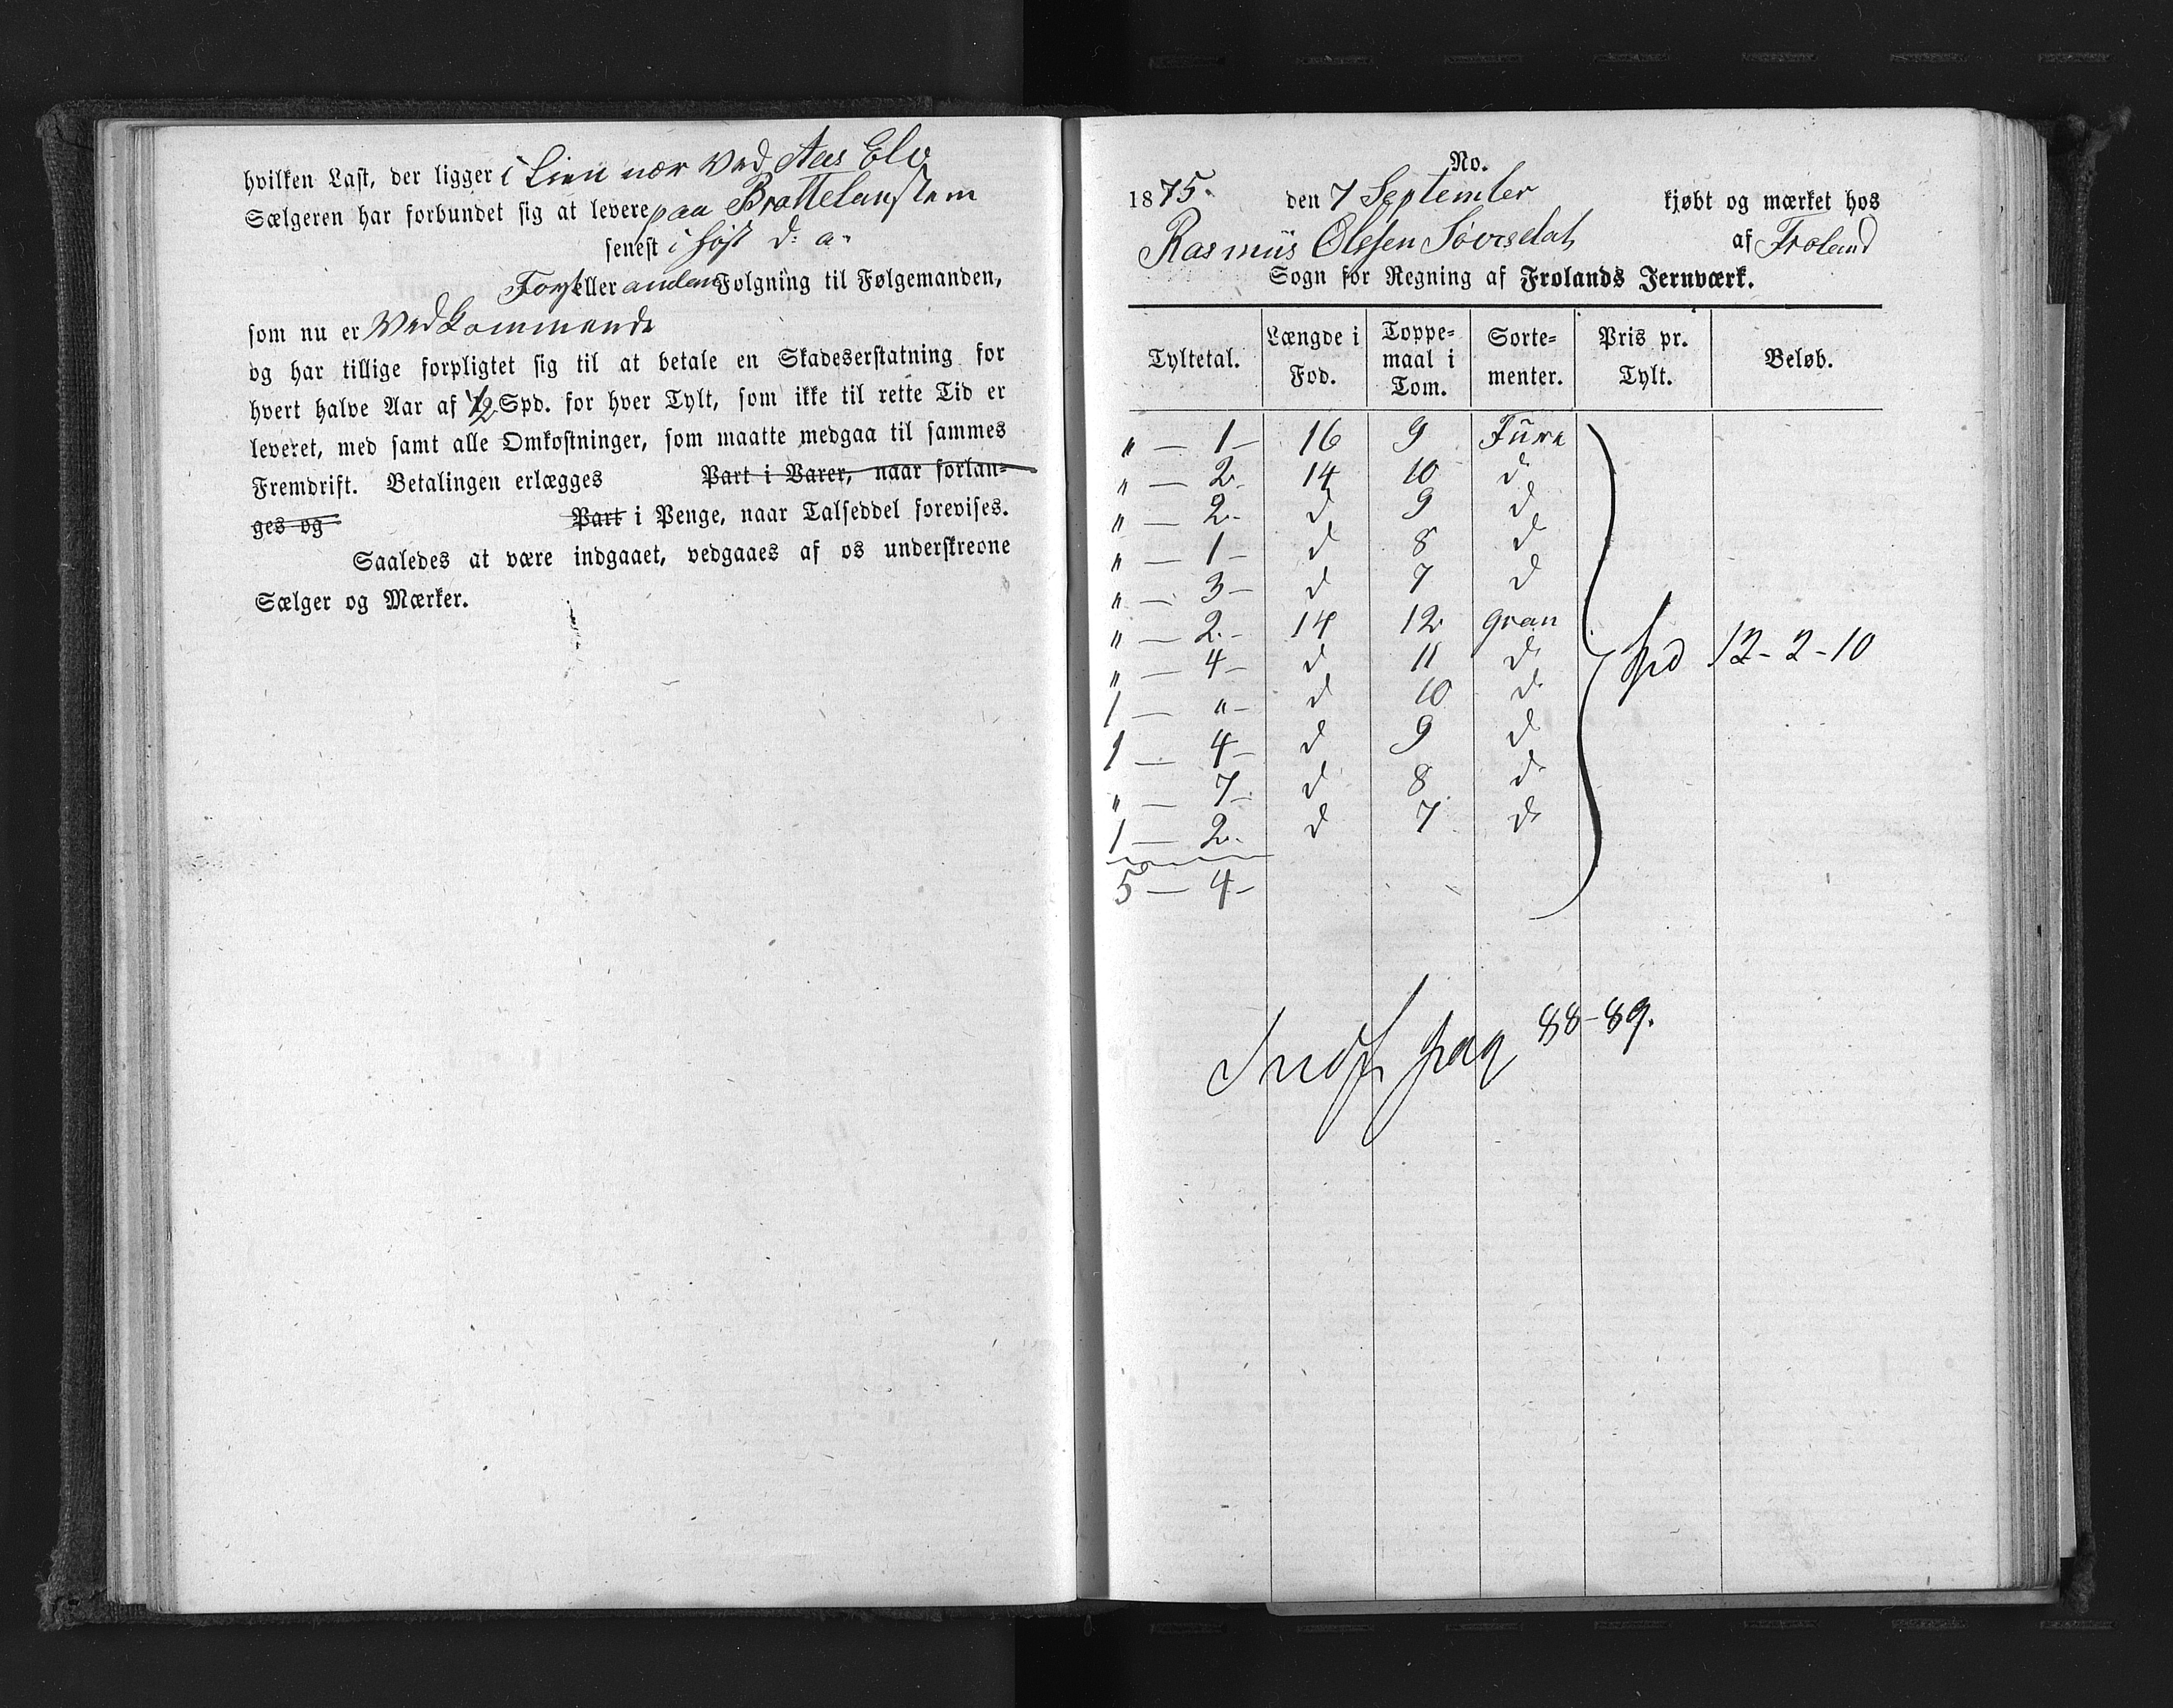 hvilken Last, der ligger i Lien nær ved Aas Elv
Sælgeren har forbundet sig at levere paa Brattelandstem
senest i Høst d: a.
Forst eller anden Følgning til Følgemanden,
som nu er Vedkommende
og har tillige forpligtet sig til at betale en Skadeserstatning for
hvert halve Aar af 1/2 Spd. for hver Tylt, som ikke til rette Tid er
leveret, med samt alle Omkostninger, som maatte medgaa til sammes
Fremdrift. Betalingen erlægges Part i Varer, naar forlan=
ges og Part i Penge, naar Talseddel forevises.
Saaledes at være indgaaet, vedgaaes af os underskrevne
Sælger og Mærker.
No.
1875. den 7 September kjøbt og mærket hos
Rasmus Olssen af Froland
Sogn for Regning af Frolands Jernværk.
Tyltetal. Længde i Fod. Toppe= maal i Tom. Sorte= menter. Pris pr. Tylt. Beløb.
" — 1 — 16 9 Furu
" — 2 - 14 10 d
" — 2 - d 9 d
" — 1 — d 8 d
" — 3 — d 7 d
" — 2 - 14 12 gran
" — 4 — d 11 d
1 — " — d 10 d
1 — 4 — d 9 d
" — 7 - d 8 d
1 — 2 - d 7 d
Spd 12 - 2 - 10
5 — 4 —
Indf pag 88-89.